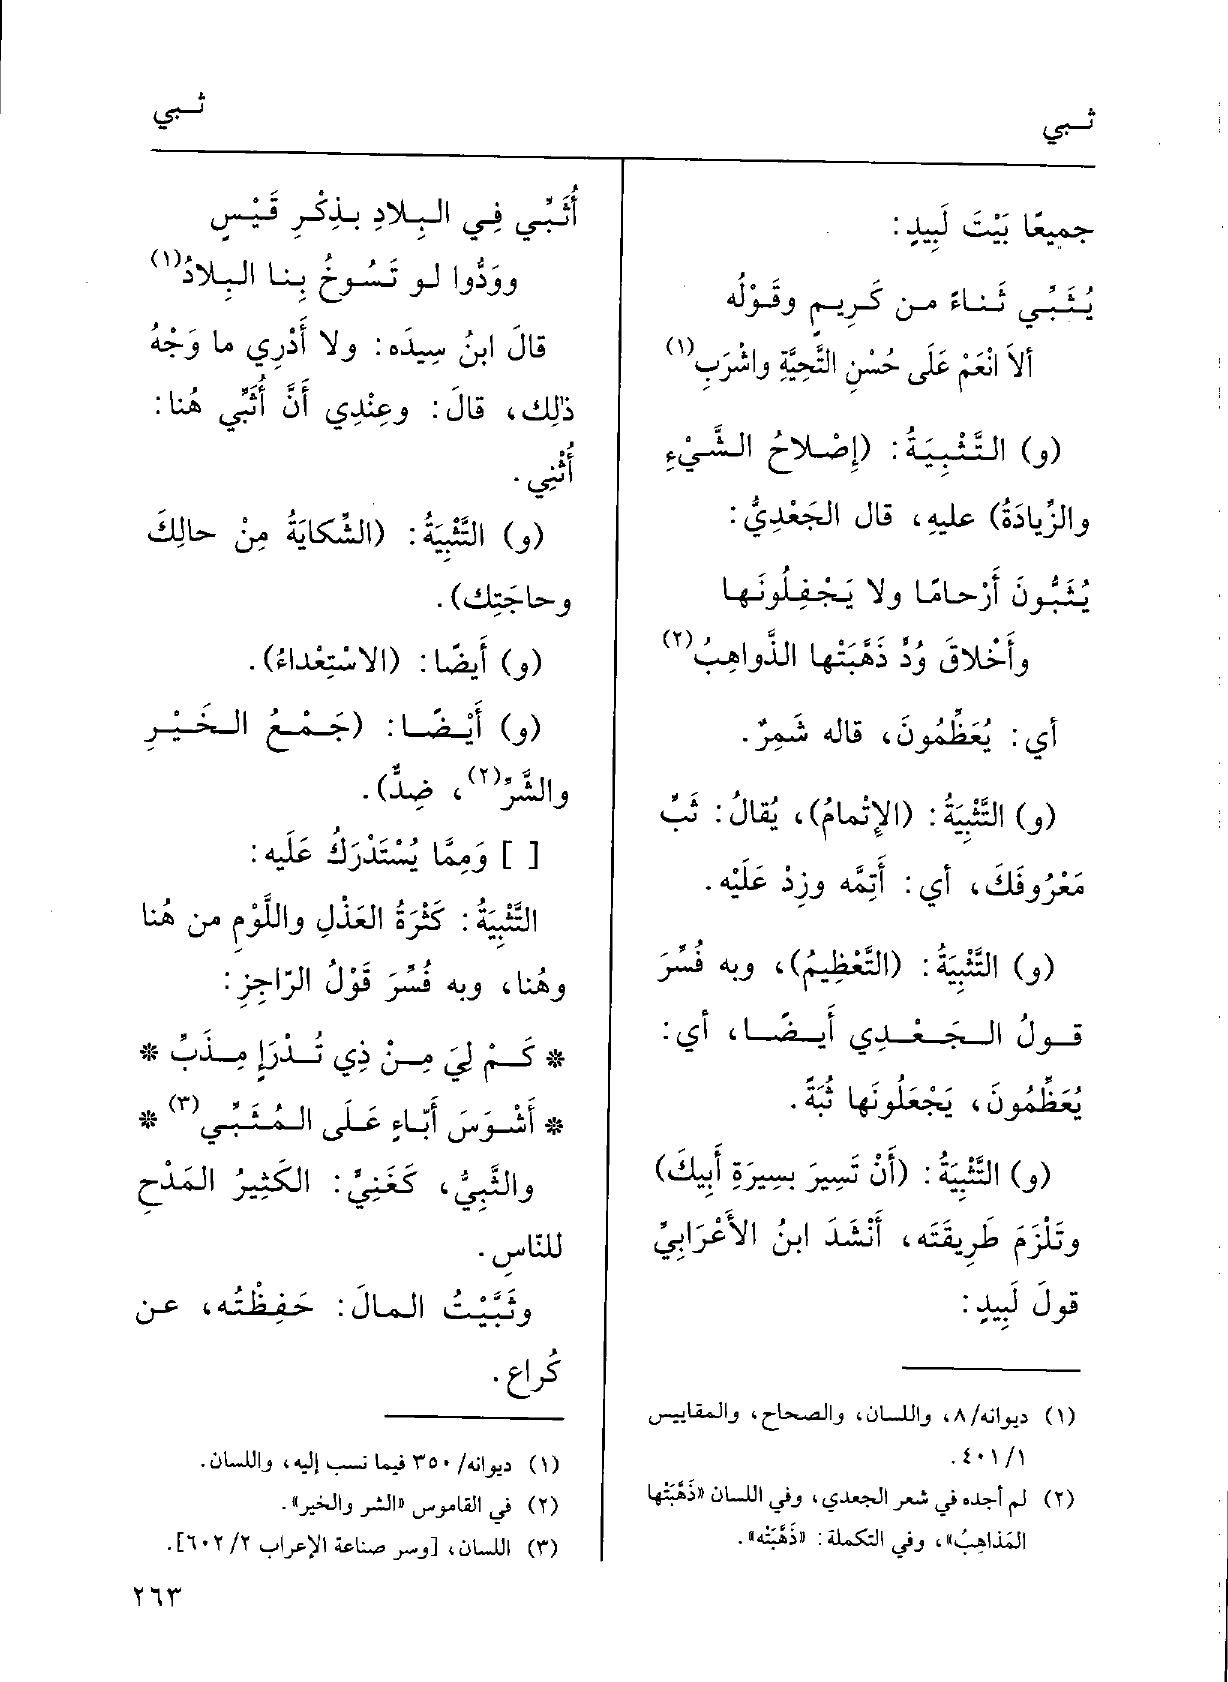 ثـبي
ثـبي
جميعًا بَيْتَ لَبِيدٍ:
يُـثَـبِّـي ثَـنـاءً مـن كَـرِيـمٍ وقَـوْلُه
ألاَ انْعَمْ عَلَى حُسْنِ التَّحِيَّةِ واشْرَبِ(١)
(و) التَّـثْـبِـيَـةُ: (إِصْـلاحُ الـشَّـيْءِ
والزِّيادَةُ) عليهِ، قال الجَعْدِيُّ:
يُثَبُّونَ أَرْحـامًا ولا يَـجْـفِـلُونَـها
وأَخْلاقَ وُدٍّ ذَهَّبَتْها الذَّواهِبُ(٢)
أي: يُعَظِّمُونَ، قاله شَمِرٌ.
(و) التَّثْبِيَةُ: (الإِتْمامُ)، يُقالُ: ثَبِّ
مَعْرُوفَكَ، أي: أَتِمَّه وزِدْ عَلَيْه.
(و) التَّثْبِيَةُ: (التَّعْظِيمُ)، وبه فُسِّرَ
قـولُ الـجَـعْـدِي أَيـضًـا، أي:
يُعَظِّمُونَ، يَجْعَلُونَها ثُبَةً.
(و) التَّثْبِيَةُ: (أَنْ تَسِيرَ بسِيرَةِ أَبِيكَ)
وتَلْزَمَ طَرِيقَتَه، أَنْشَدَ ابنُ الأَعْرَابِيِّ
قولَ لَبِيدٍ:
(١) ديوانه/٨، واللسان، والصحاح، والمقاييس
٤٠١/١.
(٢) لم أجده في شعر الجعدي، وفي اللسان «ذَهَّبَتْها
المَذاهِبُ»، وفي التكملة: «ذَهَّبَتْه».
أُثَـبِّـي فِـي الـبِـلادِ بـذِكْـرِ قَـيْـسٍ
ووَدُّوا لـو تَـسُـوخُ بِـنـا الـبِـلادُ(١)
قالَ ابنُ سِيدَه: ولا أَدْرِي ما وَجْهُ
ذٰلِك، قالَ: وعِنْدِي أَنَّ أُثَبِّي هُنا:
أُثْنِي.
(و) التَّثْبِيَةُ: (الشِّكايَةُ مِنْ حالِكَ
وحاجَتِك).
(و) أَيضًا: (الاسْتِعْداءُ).
(و) أَيْـضًـا: (جَـمْـعُ الـخَـيْـرِ
والشَّرِّ(٢)، ضِدٌّ).
[ ] وَمِمَّا يُسْتَدْرَكُ عَلَيه:
التَّثْبِيَةُ: كَثْرَةُ العَذْلِ واللَّوْمِ من هُنا
وهُنا، وبه فُسِّرَ قَوْلُ الرّاجِزِ:
* كَـمْ لِيَ مِـنْ ذِي تُـدْرَإٍ مِـذَبِّ *
* أَشْـوَسَ أَبّـاءٍ عَـلَى الـمُـثَـبِّـي(٣) *
والثَّبِيُّ، كَغَنِيٍّ: الكَثِيرُ المَدْحِ
للنّاسِ.
وثَبَّيْتُ المالَ: حَفِظْتُه، عن
كُراع.
(١) ديوانه/ ٣٥٠ فيما نسب إليه، واللسان.
(٢) في القاموس «الشر والخير».
(٣) اللسان، [وسر صناعة الإعراب ٢/ ٦٠٢].
٢٦٣